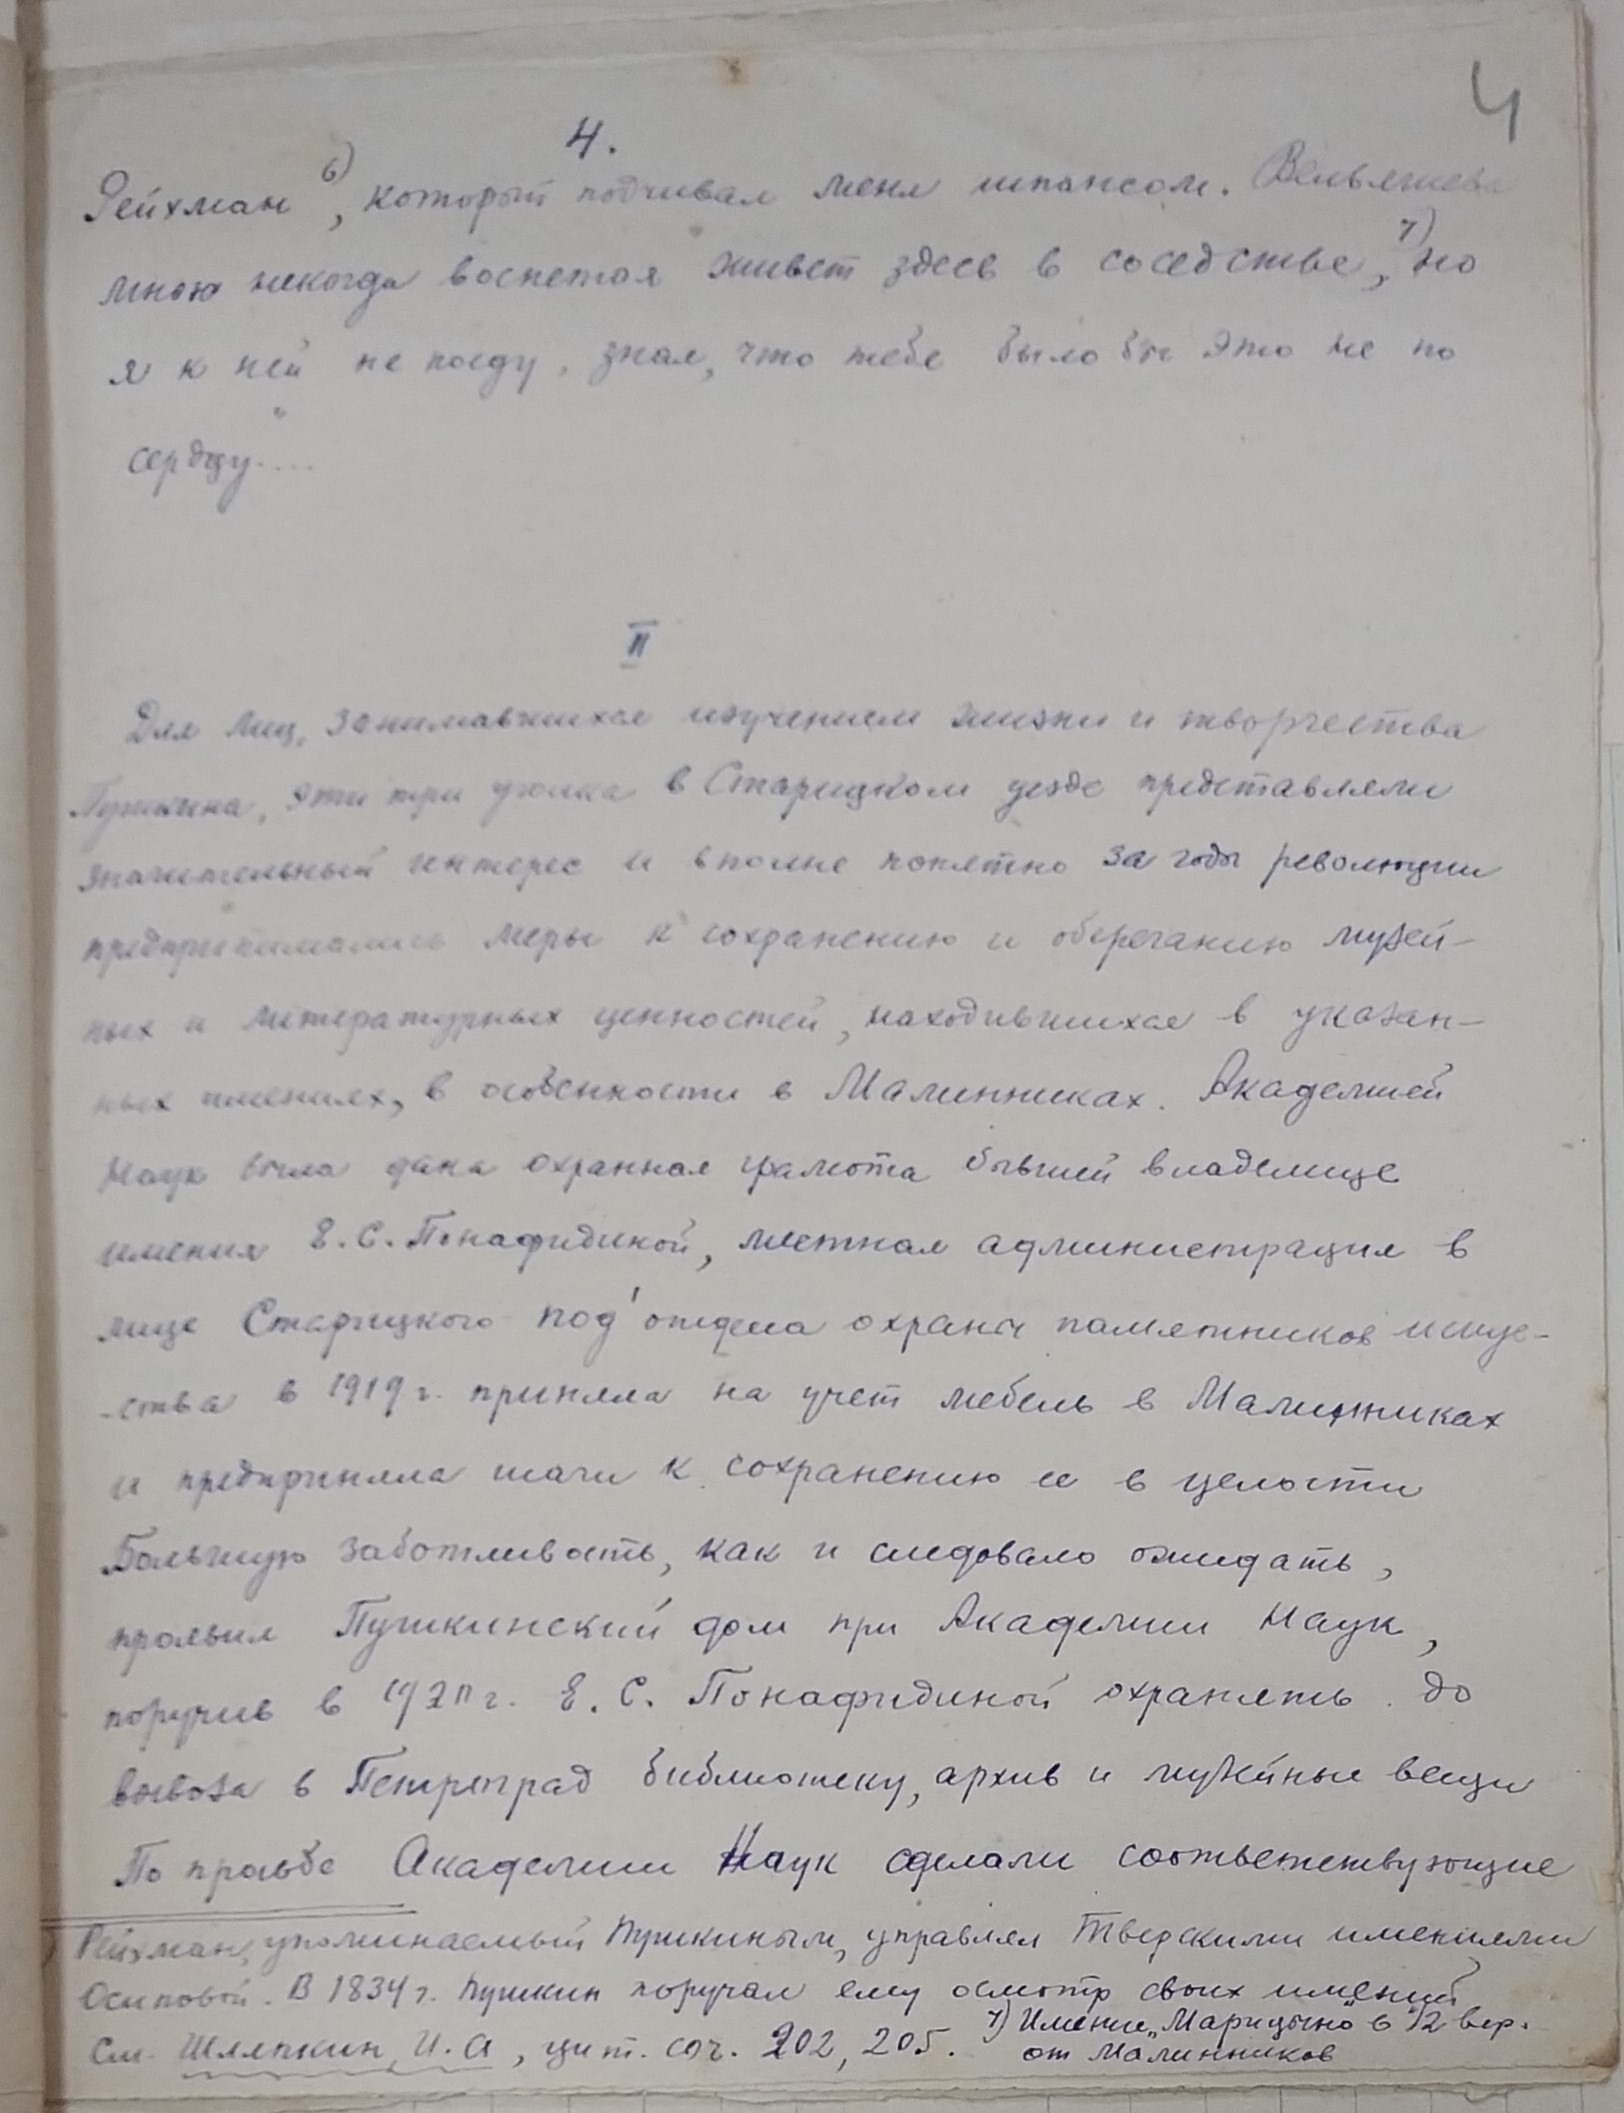 4
4.
Рейхман 6), который подчивал меня шпансом. Вельяшева
мною некогда воспетая живет здесь в соседстве, 7) но
я к ней не поеду, зная, что тебе было бы это не по
сердцу...."
II
Для лиц, занимавшихся изучением жизни и творчества
Пушкина, эти три уголка в Старицком уезде представляли
значительный интерес и вполне понятно за годы революции
предпринимались меры к сохранению и оберeганию музей-
ных и литературных ценностей, находившихся в указан-
ных имениях, в особенности в Малинниках. Академией
Наук была дана охранная грамота бывшей владелице
имения Е.С. Понафидиной, местная администрация в
лице Старицкого под'отдела охраны памятников искус-
-ства в 1919 г. приняла на учет мебель в Малинниках
и предприняла шаги к сохранению ее в целости
Большую заботливость, как и следовало ожидать,
проявил Пушкинский дом при Академии Наук,
поручив в г. Е. С. Понафидиной охранять до
вывоза в Петроград библиотеку, архив и музейные вещи
По просьбе Академии Наук сделали соответствующие
) Рейхман, упоминаемый Пушкиным, управлял Тверскими имениями
Осиповой. В 1834 г. Пушкин поручал ему осмотр своих имений
См. Шляпкин, И.А, цит. соч. 202, 205.
7) Имение „Марицыно" в 12 вер.
от Малинников